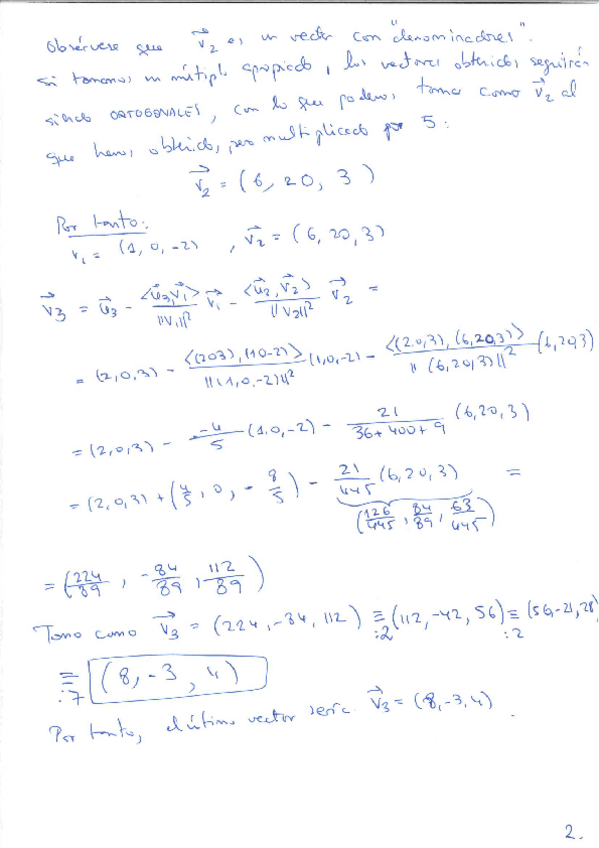 Obsérvese que v⃗₂ es un vector con "denominadores".
Si tomamos un múltiplo apropiado, los vectores obtenidos seguirán
siendo ORTOGONALES, con lo que podemos tomar como v⃗₂ al
que hemos obtenido, pero multiplicado por 5:
v⃗₂ = (6, 20, 3)
Por tanto:
v₁ = (1, 0, -2) , v⃗₂ = (6, 20, 3)
v⃗₃ = u⃗₃ - <u⃗₃, v⃗₁>/||v₁||² v⃗₁ - <u⃗₃, v⃗₂>/||v₂||² v⃗₂ =
= (2, 0, 3) - <(2 0 3), (1 0 -2)>/||(1, 0, -2)||² (1, 0, -2) - <(2, 0, 3), (6, 20, 3)>/||(6, 20, 3)||² (6, 20, 3)
= (2, 0, 3) - -4/5 (1, 0, -2) - 21/(36+400+9) (6, 20, 3)
= (2, 0, 3) + (4/5, 0, -8/5) - 21/445 (6, 20, 3) =
(126/445, 84/89, 63/445)
= (224/89, -84/89, 112/89)
Tomo como v⃗₃ = (224, -84, 112) ≡ :2 (112, -42, 56) ≡ :2 (56, -21, 28)
≡ :7 (8, -3, 4)
Por tanto, el último vector sería v⃗₃ = (8, -3, 4).
2.